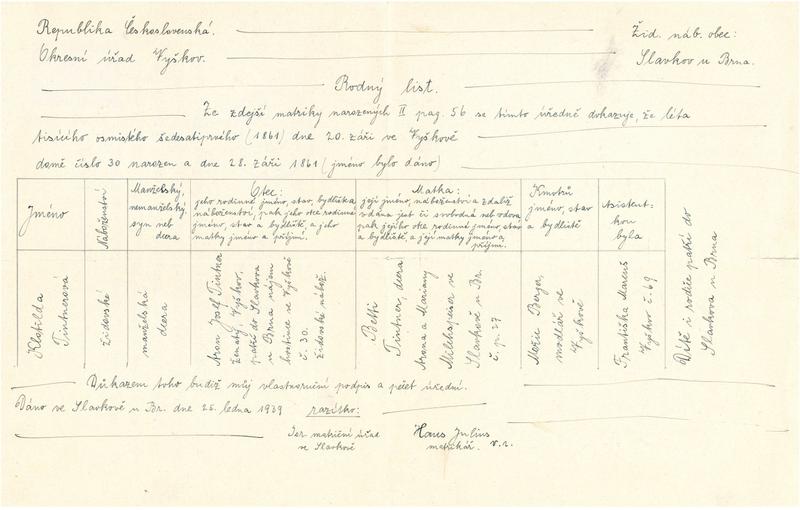 Republika Českoslovenká.
Okresní úřad Vyškov.
Žid. náb. obec:
Slavkov u Brna.
Rodný list.
Ze zdejší matriky narozených II pag. 56 se tímto úředně dokazuje, že léta
tisícího osmistého šedesátiprvého (1861) dne 20. září ve Vyškově
domě číslo 30 narozen a dne 28. září 1861 (jméno bylo dáno)
Jméno
Náboženství
Manželský,
nemanželský
syn neb
dcera
Otec:
jeho rodinné jméno, stav, bydliště a
náboženství, pak jeho otce rodinné
jméno, stav a bydliště, a jeho
matky jméno a příjmí.
Matka:
její jméno, náboženství a zdaliž
vdaná jest či svobodná neb vdova
pak jejího otce rodinné jméno, stav
a bydliště, a její matky jméno a
příjmí.
Kmotrů
jméno, stav
a bydliště
Asistent:
kou
byla
Dítě i rodiče patří do
Slavkova u Brna
Klotilda
Tintnerová
židovské
manželská
dcera
Aron Josef Tintner
ženatý, Vyškov,
patří do Slavkova
u Brna nájem
hostince ve Vyškově
č. 30.
židovské nábož.
Betti
Tintner, dcera
Arona a Mariany
Milchspeiser ve
Slavkově u Br.
č. p. 27
Mojžíš Berger,
modlář ve
Vyškově
Františka Marcus
Vyškov č. 69
Důkazem toho budiž můj vlastnoruční podpis a pečeť úřední.
Dáno ve Slavkově u Br. dne 25. ledna 1939
razítko:
Isr matriční úřad
ve Slavkově
Haus Julius
matrikář. v. r.